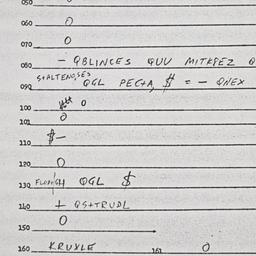 050
060 0
070 0
- QBLINCES GUV MITKPEZ
080
S+ALTENO,SES
090 QGL PECTA, $ = - QNEX
100 0
101 0
110 $-
120 0
130 QGL $
140 + QS+TRUDL
150 0
160 KRUXLE 161 0